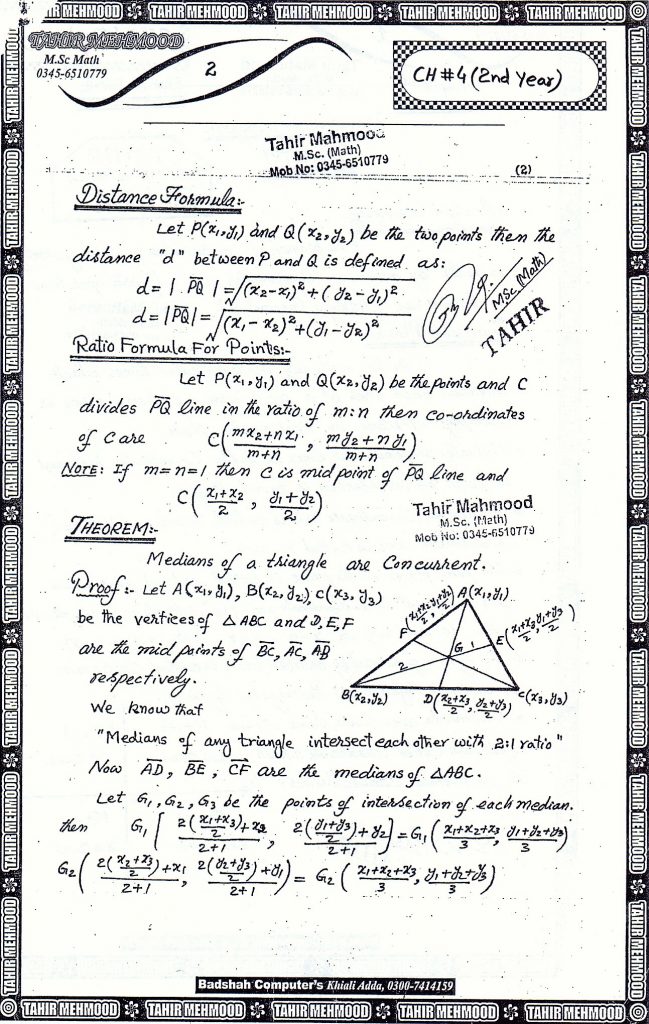 TAHIR MEHMOOD TAHIR MEHMOOD TAHIR MEHMOOD TAHIR MEHMOOD TAHIR MEHMOOD
TAHIR MEHMOOD
M.Sc Math
0345-6510779
2
CH #4 (2nd Year)
Tahir Mahmood
M.Sc. (Math)
Mob No: 0345-6510779
(2)
Distance Formula:-
Let P(x₁,y₁) and Q(x₂,y₂) be the two points then the
distance "d" between P and Q is defined as:
d = |PQ| = √((x₂-x₁)² + (y₂-y₁)²)
d = |PQ| = √((x₁-x₂)² + (y₁-y₂)²)
MSc (Math)
TAHIR
Ratio Formula For Points:-
Let P(x₁,y₁) and Q(x₂,y₂) be the points and C
divides PQ line in the ratio of m:n then co-ordinates
of C are C((mx₂+nx₁)/(m+n), (my₂+ny₁)/(m+n))
NOTE: If m=n=1 then C is mid point of PQ line and
C((x₁+x₂)/2, (y₁+y₂)/2)
Tahir Mahmood
M.Sc. (Math)
Mob No: 0345-6510779
THEOREM:-
Medians of a triangle are Concurrent.
Proof:- Let A(x₁,y₁), B(x₂,y₂), C(x₃,y₃)
be the vertices of △ABC and D,E,F
are the mid points of BC, AC, AB
respectively.
A(x₁,y₁)
F((x₁+x₂)/2, (y₁+y₂)/2)
E((x₁+x₃)/2, (y₁+y₃)/2)
G 1
2
B(x₂,y₂) D((x₂+x₃)/2, (y₂+y₃)/2) C(x₃,y₃)
We know that
"Medians of any triangle intersect each other with 2:1 ratio"
Now AD, BE, CF are the medians of △ABC.
Let G₁, G₂, G₃ be the points of intersection of each median.
then G₁[(2((x₁+x₃)/2)+x₂)/(2+1), (2((y₁+y₃)/2)+y₂)/(2+1)] = G₁((x₁+x₂+x₃)/3, (y₁+y₂+y₃)/3)
G₂((2((x₂+x₃)/2)+x₁)/(2+1), (2((y₂+y₃)/2)+y₁)/(2+1)) = G₂((x₁+x₂+x₃)/3, (y₁+y₂+y₃)/3)
Badshah Computer's Khiali Adda, 0300-7414159
TAHIR MEHMOOD TAHIR MEHMOOD TAHIR MEHMOOD TAHIR MEHMOOD TAHIR MEHMOOD